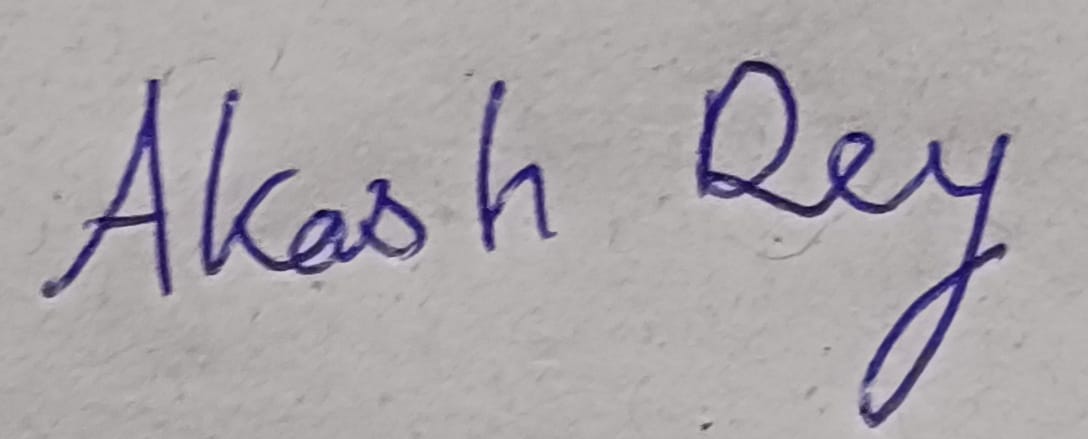 Akash Dey